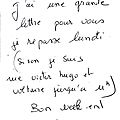 J'ai une grande
lettre pour vous
je repasse lundi
(sinon je suis
rue victor hugo et
voltaire jusqu'au 11h)
Bon week end